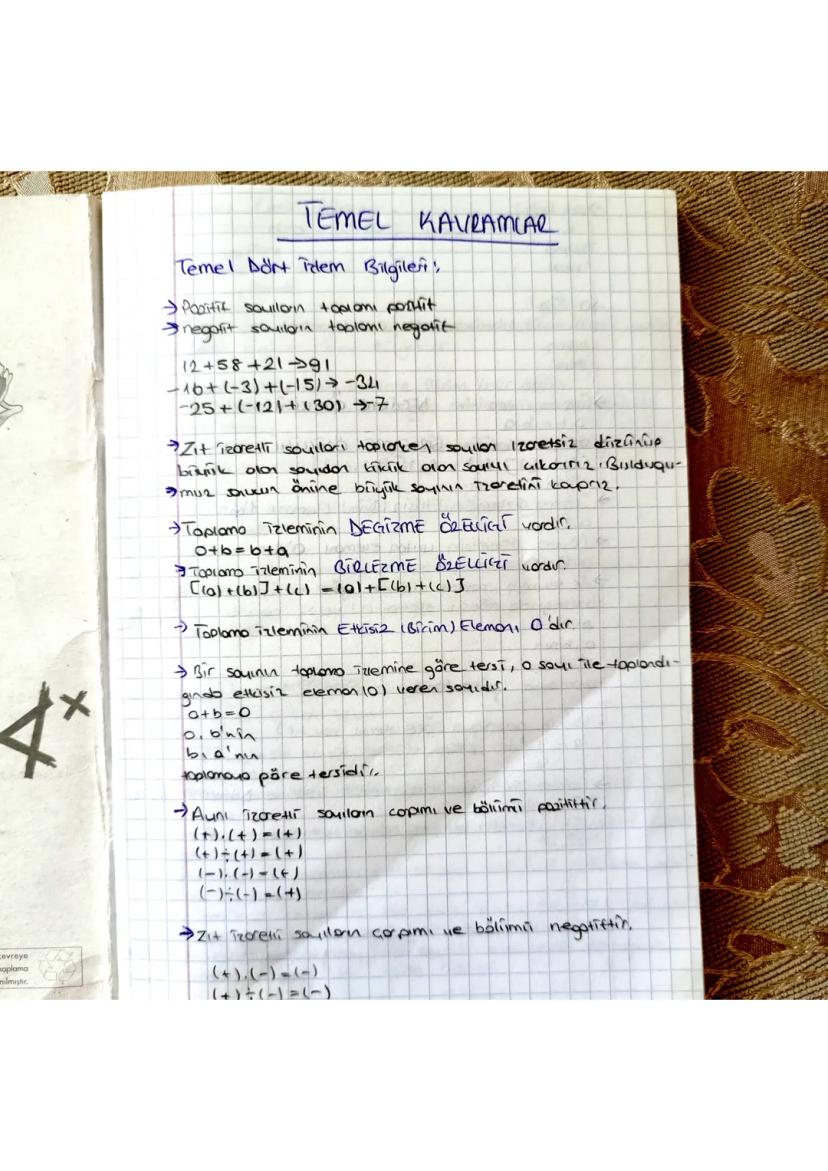 TEMEL KAVRAMLAR
Temel Dört İşlem Bilgileri:
→ Pozitif sayıların toplamı pozitif
→ negatif sayıların toplamı negatif
12+58+21→91
-16+(-3)+(-15)→-34
-25+(-12)+(30)→-7
→ Zıt işaretli sayıları toplarken sayıları işaretsiz düşünüp
büyük olan sayıdan küçük olan sayıyı çıkarırız. Bulduğu-
→ muz sayının önüne büyük sayının işaretini koyarız.
→ Toplama işleminin DEĞİŞME ÖZELLİĞİ vardır.
a+b=b+a
→ Toplama işleminin BİRLEŞME ÖZELLİĞİ vardır.
[(a)+(b)]+(c)=(a)+[(b)+(c)]
→ Toplama işleminin Etkisiz (Birim) Elemanı 0'dır.
→ Bir sayının toplama işlemine göre tersi, o sayı ile toplandı-
ğında etkisiz eleman (0) veren sayıdır.
a+b=0
a, b'nin
b, a'nın
toplamaya göre tersidir.
→ Aynı işaretli sayıların çarpımı ve bölümü pozitiftir.
(+).(+)=(+)
(+)÷(+)=(+)
(-).(-)=(+)
(-)÷(-)=(+)
→ Zıt işaretli sayıların çarpımı ve bölümü negatiftir.
(+).(-)=(-)
(+)÷(-)=(-)
A^x
çevreye
kaplama
nılmıştır.